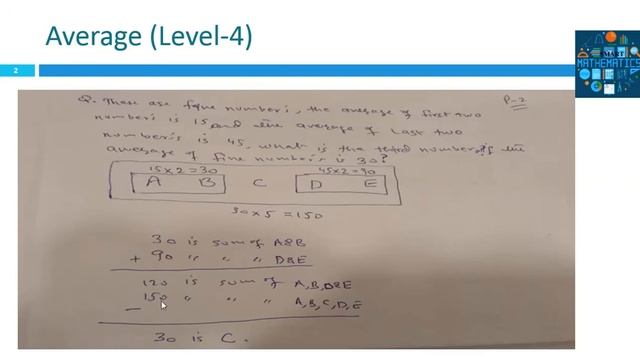 Average (Level-4)
SMART
MATHEMATICS
2
P-2
Q. There are five numbers, the average of first two
numbers is 15, and the average of last two
numbers is 45, what is the third number, if the
average of five numbers is 30?
15x2=30 45x2=90
A B C D E
30x5=150
30 is sum of A&B
+ 90 " " " D&E
120 is sum of A,B,D&E
150 " " " A,B,C,D,E
−
30 is C.